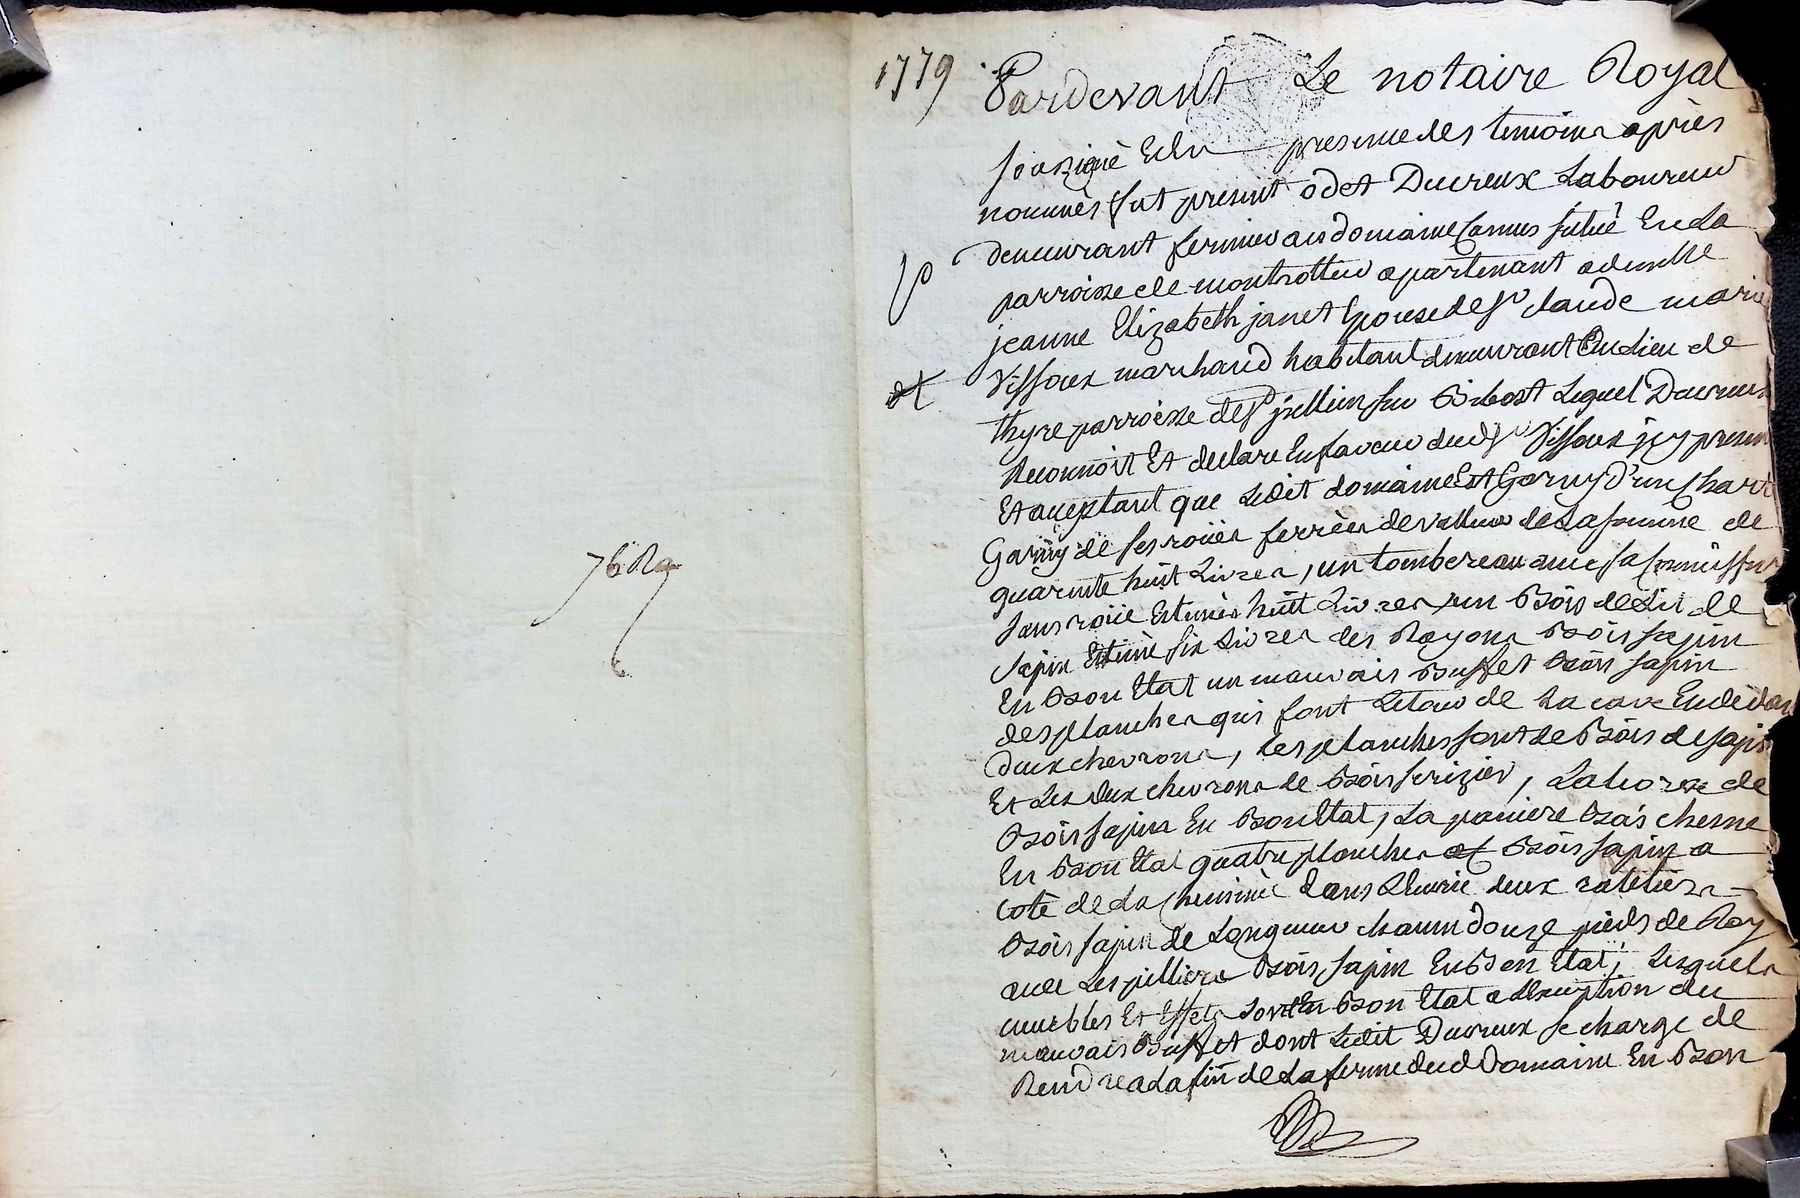 76 Ra
1779
Pardevant Le notaire Royal
soussigné Et En presence des temoins après
nommés fut present odet Ducreux Laboureur
demeurant fermier au domaine Camus situé En La
parroisse de montrotier apartenant a demlle
jeanne Elizabeth janet Epouse de Sr claude marie
Vissoux marchand habitant demeurant Audieu de
thyre parroisse de St jullien sur Bibost Lequel Ducreux
Reconnoit Et declare En faveur dud Sr Vissoux jcy present
Et aceptant que Ledit domaine Est Garny d'un Chart
Garny de ses roües ferrées de valleur de La somme de
quarente huit Livres, un tombereau avec sa
sans roüe Estimés huit Livres un Bois de Lit de
sapin Estimé six Livres des Rayons Bois sapin
En Bon Etat un mauvais Buffet Bois sapin
des planches qui font Letour de La cave En dedans
deux chevrons, Les planches sont de Bois de sapin
Et Les deux chevrons de Bois serizier, La de
Bois sapin En Bon Etat, La paniere Bois chesne
En Bon Etat quatre planches Bois sapin a
coté de La cheminée dans Lecurie deux rateliers
Bois sapin de Longueur chacun douze pieds de Roy
avec Les pilliers Bois sapin En Bon Etat, Lesquels
meubles Et Effets sont En Bon Etat a Lexception du
mauvais Buffet dont Ledit Ducreux se charge de
Rendre a La fin de La ferme dud Domaine En Bon